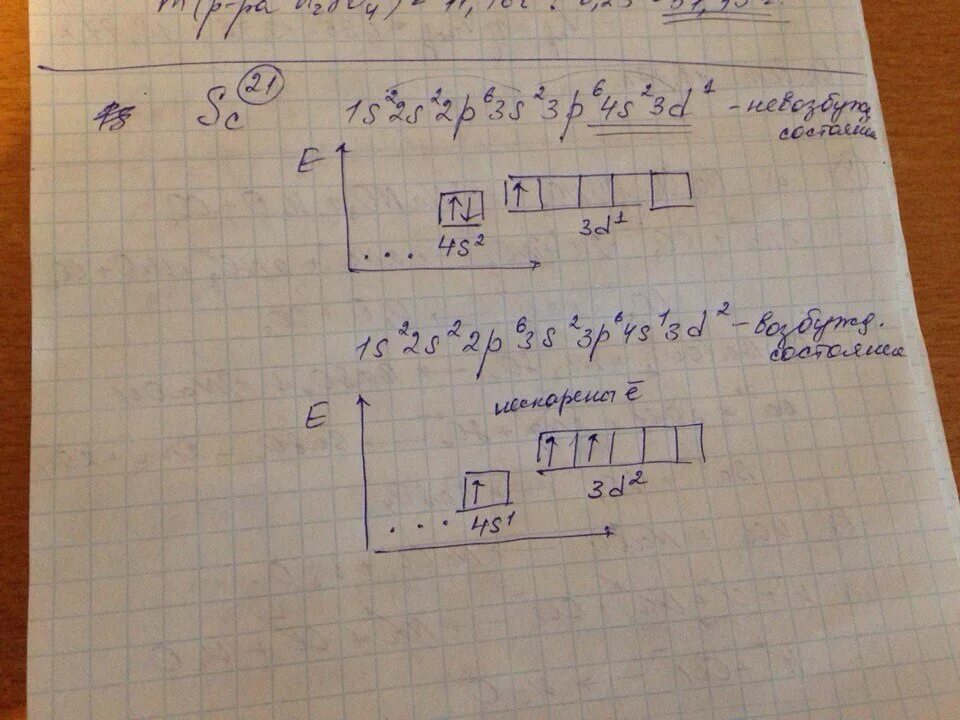 m(р-ра
Sc 21 1s²2s²2p⁶3s²3p⁶4s²3d¹ - невозбужд
состояние
E
↑↓ ↑
4s² 3d¹
...
1s²2s²2p⁶3s²3p⁶4s¹3d² - возбужд.
состояние
E неспарены ē
↑ ↑ ↑
4s¹ 3d²
...